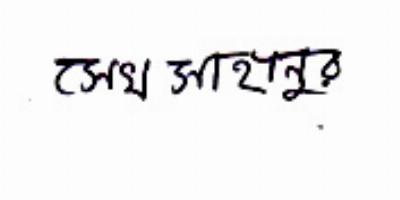 সেখ সাহানুর